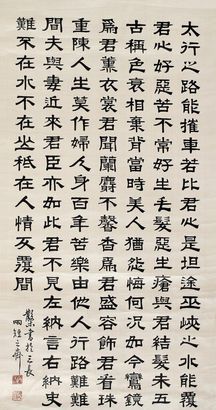 太行之路能摧車若比君心是坦途巫峽之水能覆
君心好惡苦不常好生毛髮惡生瘡與君結髮未五
古稱色衰相棄背當時美人猶怨悔何況如今鸞鏡
爲君薰衣裳君聞蘭麝不馨香爲君盛容飾君看珠
重陳人生莫作婦人身百年苦樂由他人行路難難
間夫與妻近來君臣亦如此君不見左納言右納史
難不在水不在山祗在人情反覆間
書於三長
兩短之齋